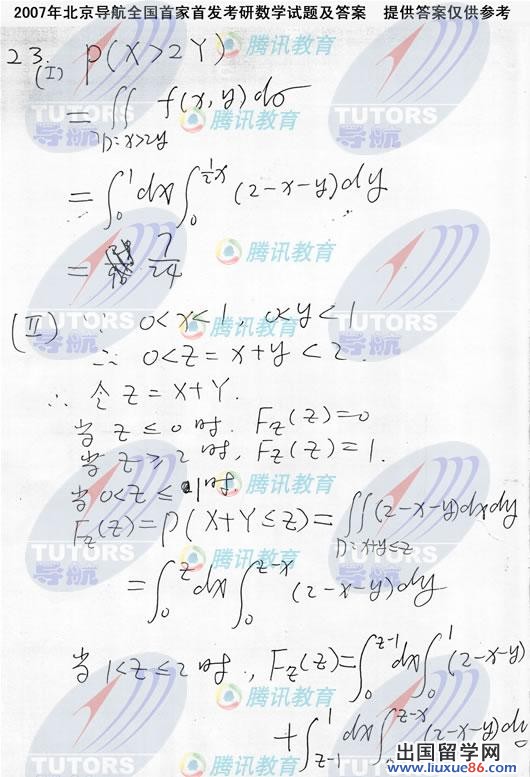 2007年北京导航全国首家首发考研数学试题及答案 提供答案仅供参考
23.
(I) P(X>2Y)
= ∬ f(x,y)dσ
D=x>2y
= ∫₀¹dx∫₀^{½x}(2-x-y)dy
= 7/24
(II) ∵ 0<x<1, 0<y<1
∴ 0<z=x+y<2.
∴ 令 z=X+Y.
当 z≤0时. F_Z(z)=0
当 z≥2时, F_Z(z)=1.
当 0<z≤1时
F_Z(z)=P(X+Y≤z)=∬(2-x-y)dxdy
D=x+y≤z
=∫₀^z dx∫₀^{z-x}(2-x-y)dy
当 1<z≤2时, F_Z(z)=∫₀^{z-1}dx∫₀¹(2-x-y)
+∫_{z-1}^1 dx∫₀^{z-x}(2-x-y)dy
TUTORS
导航
腾讯教育
出国留学网
www.liuxue86.com